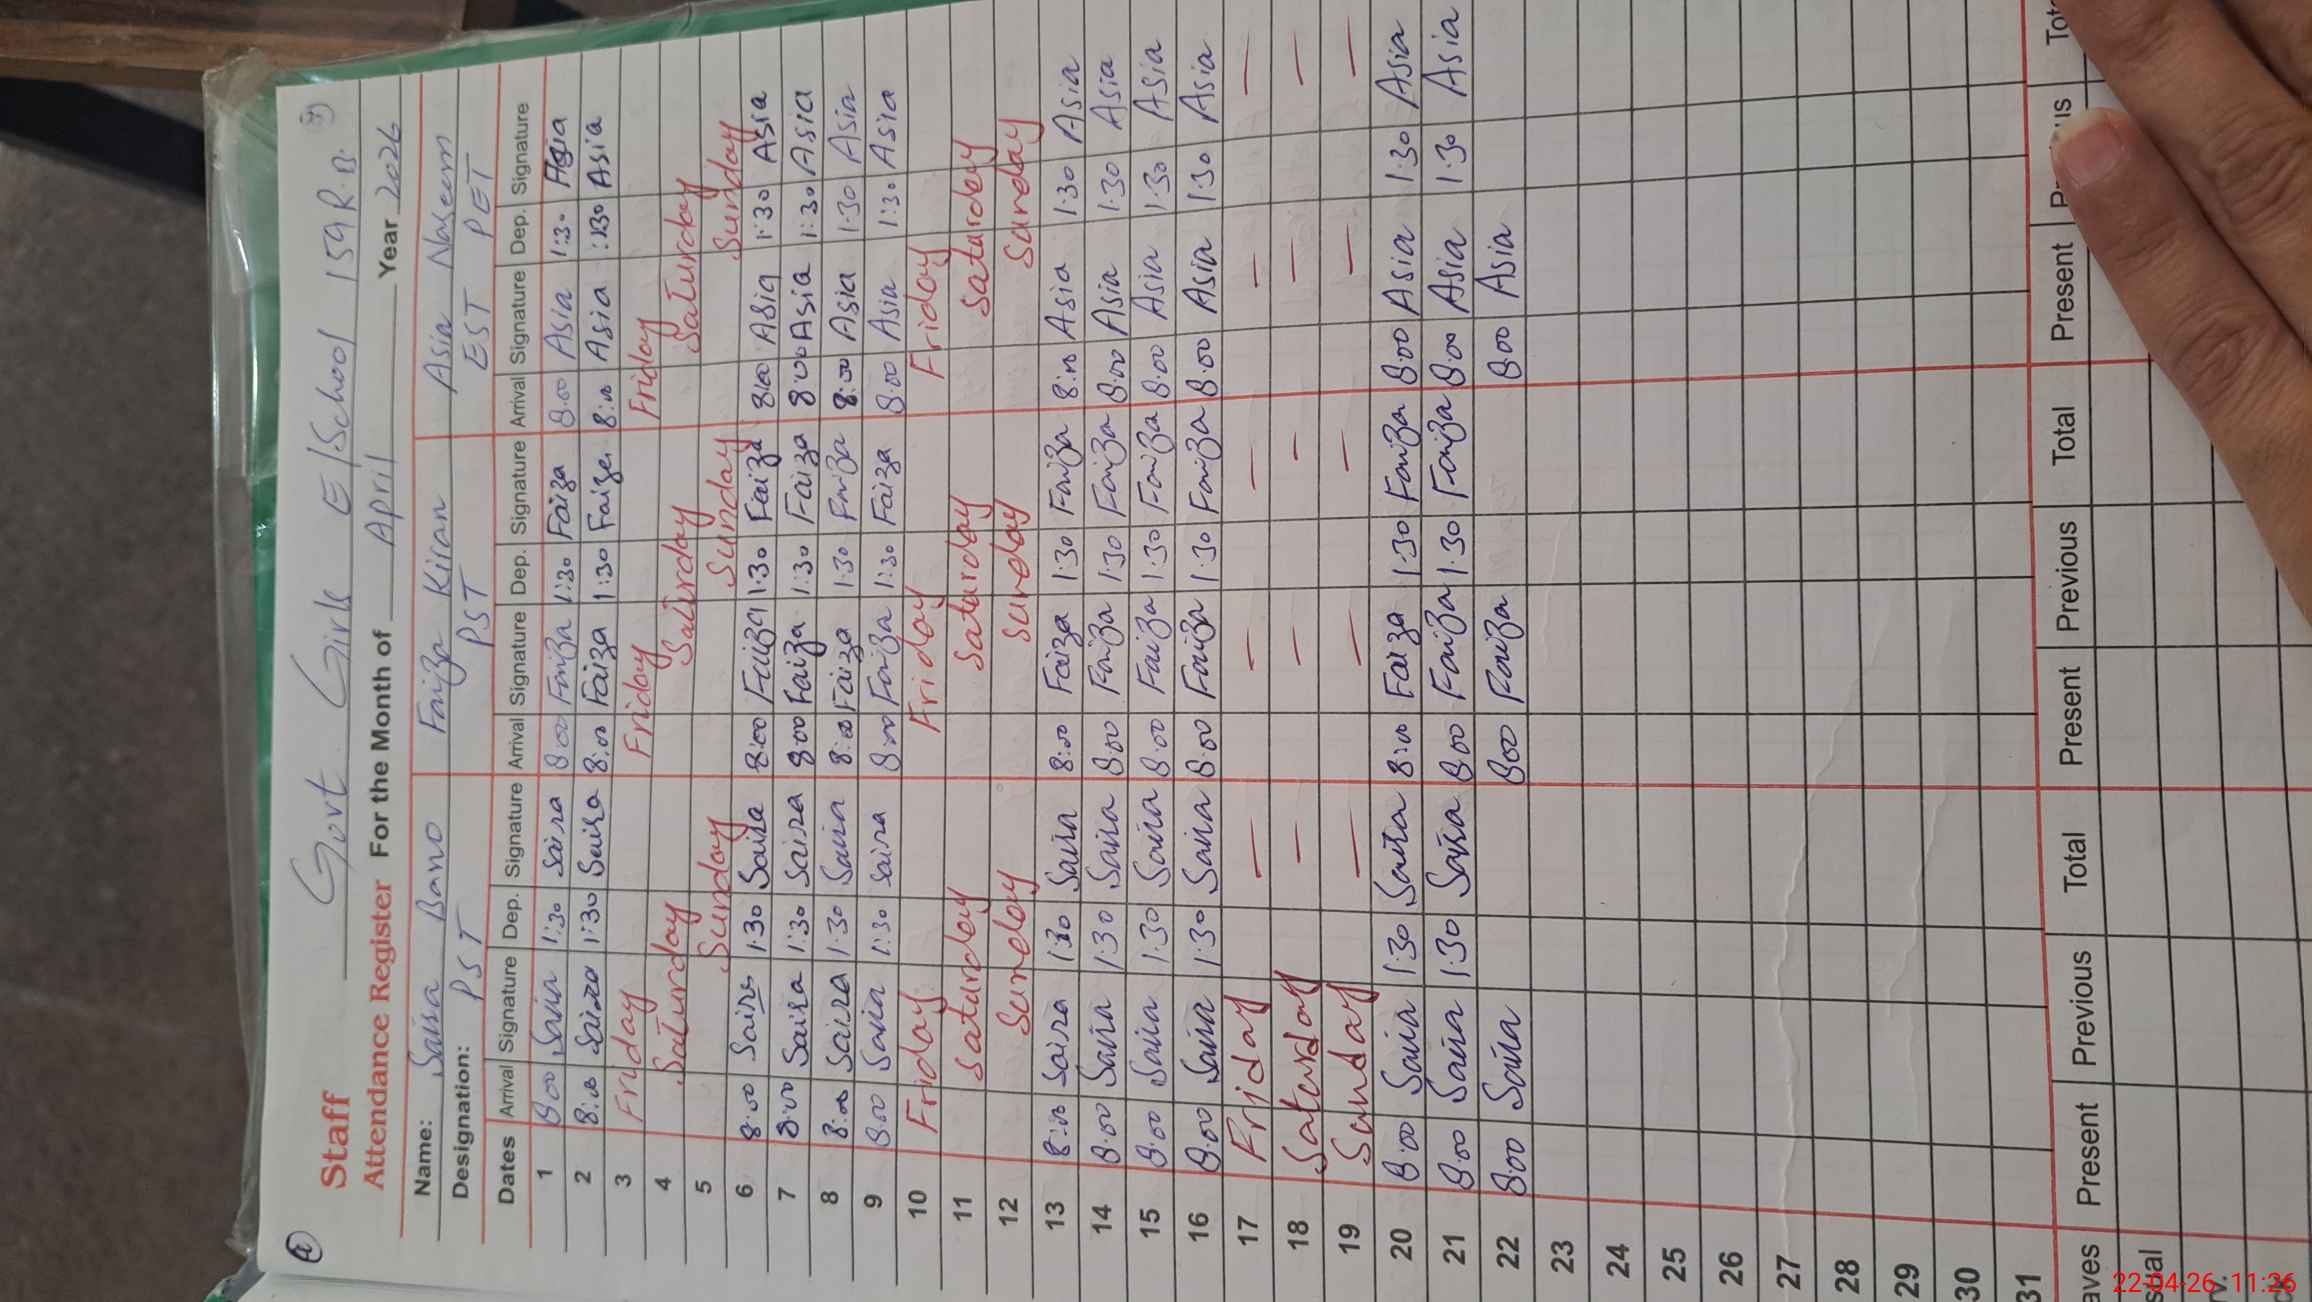 Staff Govt. Girls E/School 159 R.B.
Attendance Register For the Month of April Year 2026
Name: Saira Bano Faiza Kiran Asia Naseem
Designation: PST PST EST PET
Dates Arrival Signature Dep. Signature Arrival Signature Dep. Signature Arrival Signature Dep. Signature
1 8:00 Saira 1:30 Saira 8:00 Faiza 1:30 Faiza 8:00 Asia 1:30 Asia
2 8:00 Saira 1:30 Saira 8:00 Faiza 1:30 Faiza 8:00 Asia 1:30 Asia
3 Friday Friday Friday
4 Saturday Saturday Saturday
5 Sunday Sunday Sunday
6 8:00 Saira 1:30 Saira 8:00 Faiza 1:30 Faiza 8:00 Asia 1:30 Asia
7 8:00 Saira 1:30 Saira 8:00 Faiza 1:30 Faiza 8:00 Asia 1:30 Asia
8 8:00 Saira 1:30 Saira 8:00 Faiza 1:30 Faiza 8:00 Asia 1:30 Asia
9 8:00 Saira 1:30 Saira 8:00 Faiza 1:30 Faiza 8:00 Asia 1:30 Asia
10 Friday Friday Friday
11 Saturday Saturday Saturday
12 Sunday Sunday Sunday
13 8:00 Saira 1:30 Saira 8:00 Faiza 1:30 Faiza 8:00 Asia 1:30 Asia
14 8:00 Saira 1:30 Saira 8:00 Faiza 1:30 Faiza 8:00 Asia 1:30 Asia
15 8:00 Saira 1:30 Saira 8:00 Faiza 1:30 Faiza 8:00 Asia 1:30 Asia
16 8:00 Saira 1:30 Saira 8:00 Faiza 1:30 Faiza 8:00 Asia 1:30 Asia
17 Friday — — — — —
18 Saturday — — — — —
19 Sunday — — — — —
20 8:00 Saira 1:30 Saira 8:00 Faiza 1:30 Faiza 8:00 Asia 1:30 Asia
21 8:00 Saira 1:30 Saira 8:00 Faiza 1:30 Faiza 8:00 Asia 1:30 Asia
22 8:00 Saira 800 Faiza 8:00 Asia
23
24
25
26
27
28
29
30
31
aves Present Previous Total Present Previous Total Present
22-04-26 11:26